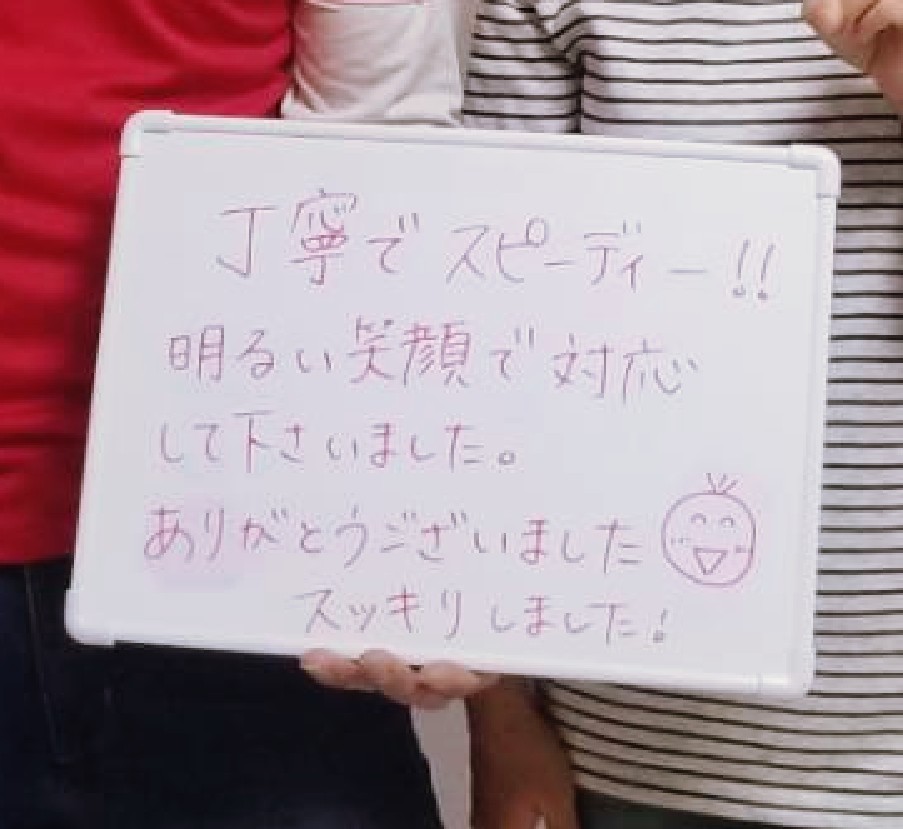 丁寧でスピーディー!!
明るい笑顔で対応
して下さいました。
ありがとうございました
スッキリしました!